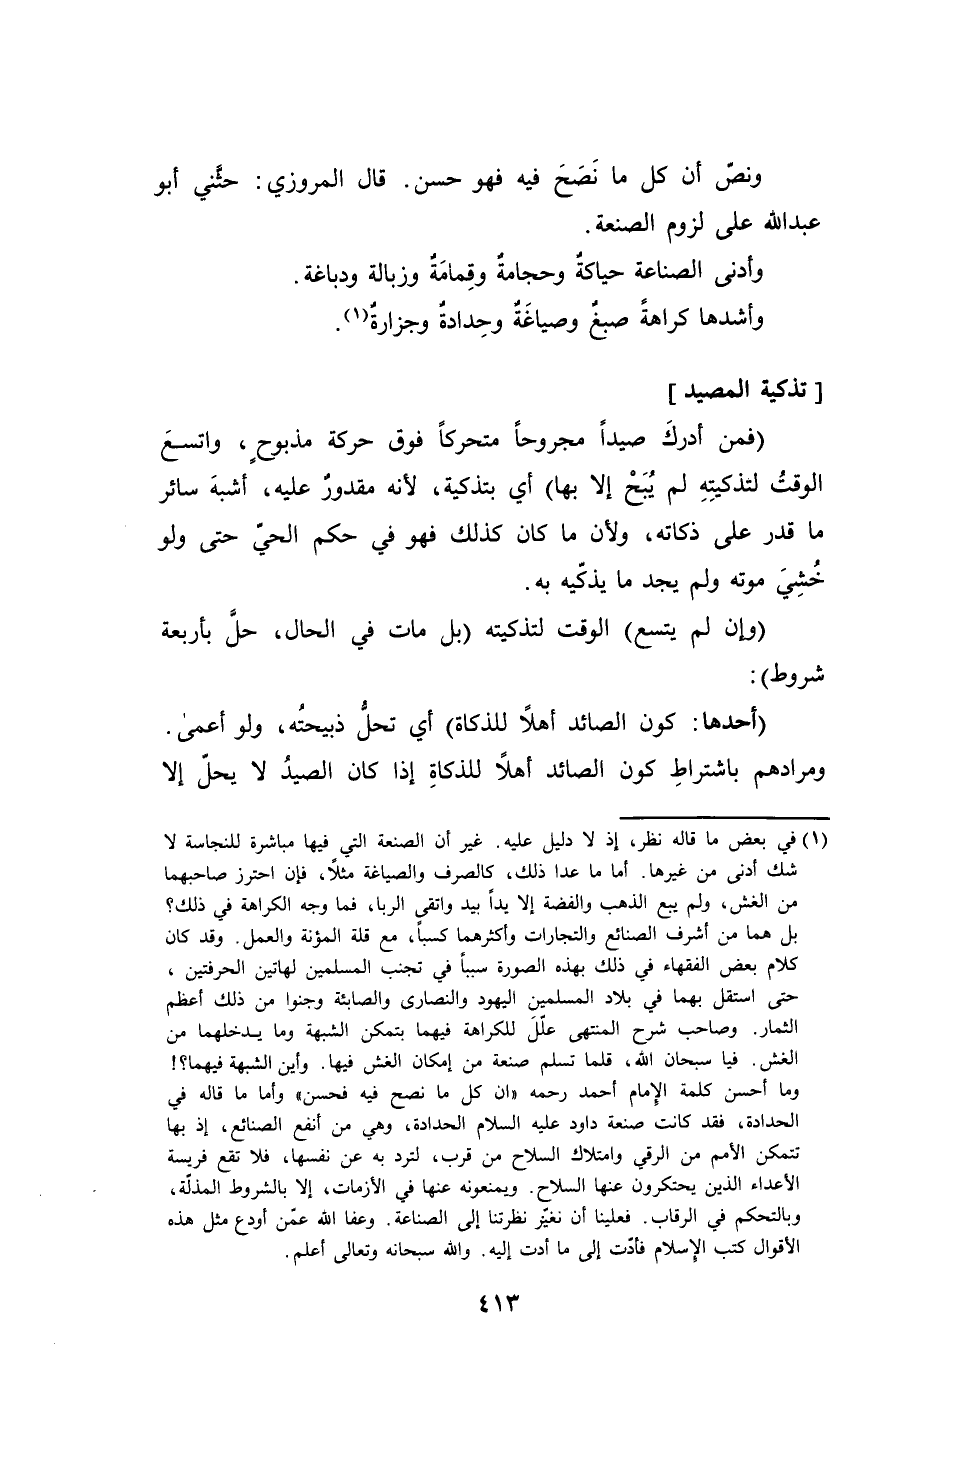 ونصّ أن كل ما نَصَحَ فيه فهو حسن. قال المروزي: حثَّني أبو
عبدالله على لزوم الصنعة.
وأدنى الصناعة حياكةٌ وحجامةٌ وقِمامَةٌ وزبالة ودباغة.
وأشدها كراهةً صبغٌ وصياغَةٌ وحِدادةٌ وجزارةٌ(١).
[ تذكية المصيد ]
(فمن أدركَ صيداً مجروحاً متحركاً فوق حركة مذبوحٍ، واتسعَ
الوقتُ لتذكيتِهِ لم يُبَحْ إلا بها) أي بتذكية، لأنه مقدورٌ عليه، أشبهَ سائر
ما قدر على ذكاته، ولأن ما كان كذلك فهو في حكم الحيّ حتى ولو
خُشِيَ موته ولم يجد ما يذكّيه به.
(وإن لم يتسع) الوقت لتذكيته (بل مات في الحال، حلَّ بأربعة
شروط):
(أحدها: كون الصائد أهلاً للذكاة) أي تحلُّ ذبيحتُه، ولو أعمىٰ.
ومرادهم باشتراطِ كون الصائد أهلاً للذكاةِ إذا كان الصيدُ لا يحلّ إلا
(١) في بعض ما قاله نظر، إذ لا دليل عليه. غير أن الصنعة التي فيها مباشرة للنجاسة لا
شك أدنى من غيرها. أما ما عدا ذلك، كالصرف والصياغة مثلاً، فإن احترز صاحبهما
من الغش، ولم يبع الذهب والفضة إلا يداً بيد واتقى الربا، فما وجه الكراهة في ذلك؟
بل هما من أشرف الصنائع والتجارات وأكثرهما كسباً، مع قلة المؤنة والعمل. وقد كان
كلام بعض الفقهاء في ذلك بهذه الصورة سبباً في تجنب المسلمين لهاتين الحرفتين ،
حتى استقل بهما في بلاد المسلمين اليهود والنصارى والصابئة وجنوا من ذلك أعظم
الثمار. وصاحب شرح المنتهى علّلَ للكراهة فيهما بتمكن الشبهة وما يدخلهما من
الغش. فيا سبحان الله، قلما تسلم صنعة من إمكان الغش فيها. وأين الشبهة فيهما؟!
وما أحسن كلمة الإمام أحمد رحمه «ان كل ما نصح فيه فحسن» وأما ما قاله في
الحدادة، فقد كانت صنعة داود عليه السلام الحدادة، وهي من أنفع الصنائع، إذ بها
تتمكن الأمم من الرقي وامتلاك السلاح من قرب، لترد به عن نفسها، فلا تقع فريسة
الأعداء الذين يحتكرون عنها السلاح. ويمنعونه عنها في الأزمات، إلا بالشروط المذلّة،
وبالتحكم في الرقاب. فعلينا أن نغيّر نظرتنا إلى الصناعة. وعفا الله عمّن أودع مثل هذه
الأقوال كتب الإسلام فأدّت إلى ما أدت إليه. والله سبحانه وتعالى أعلم.
٤١٣